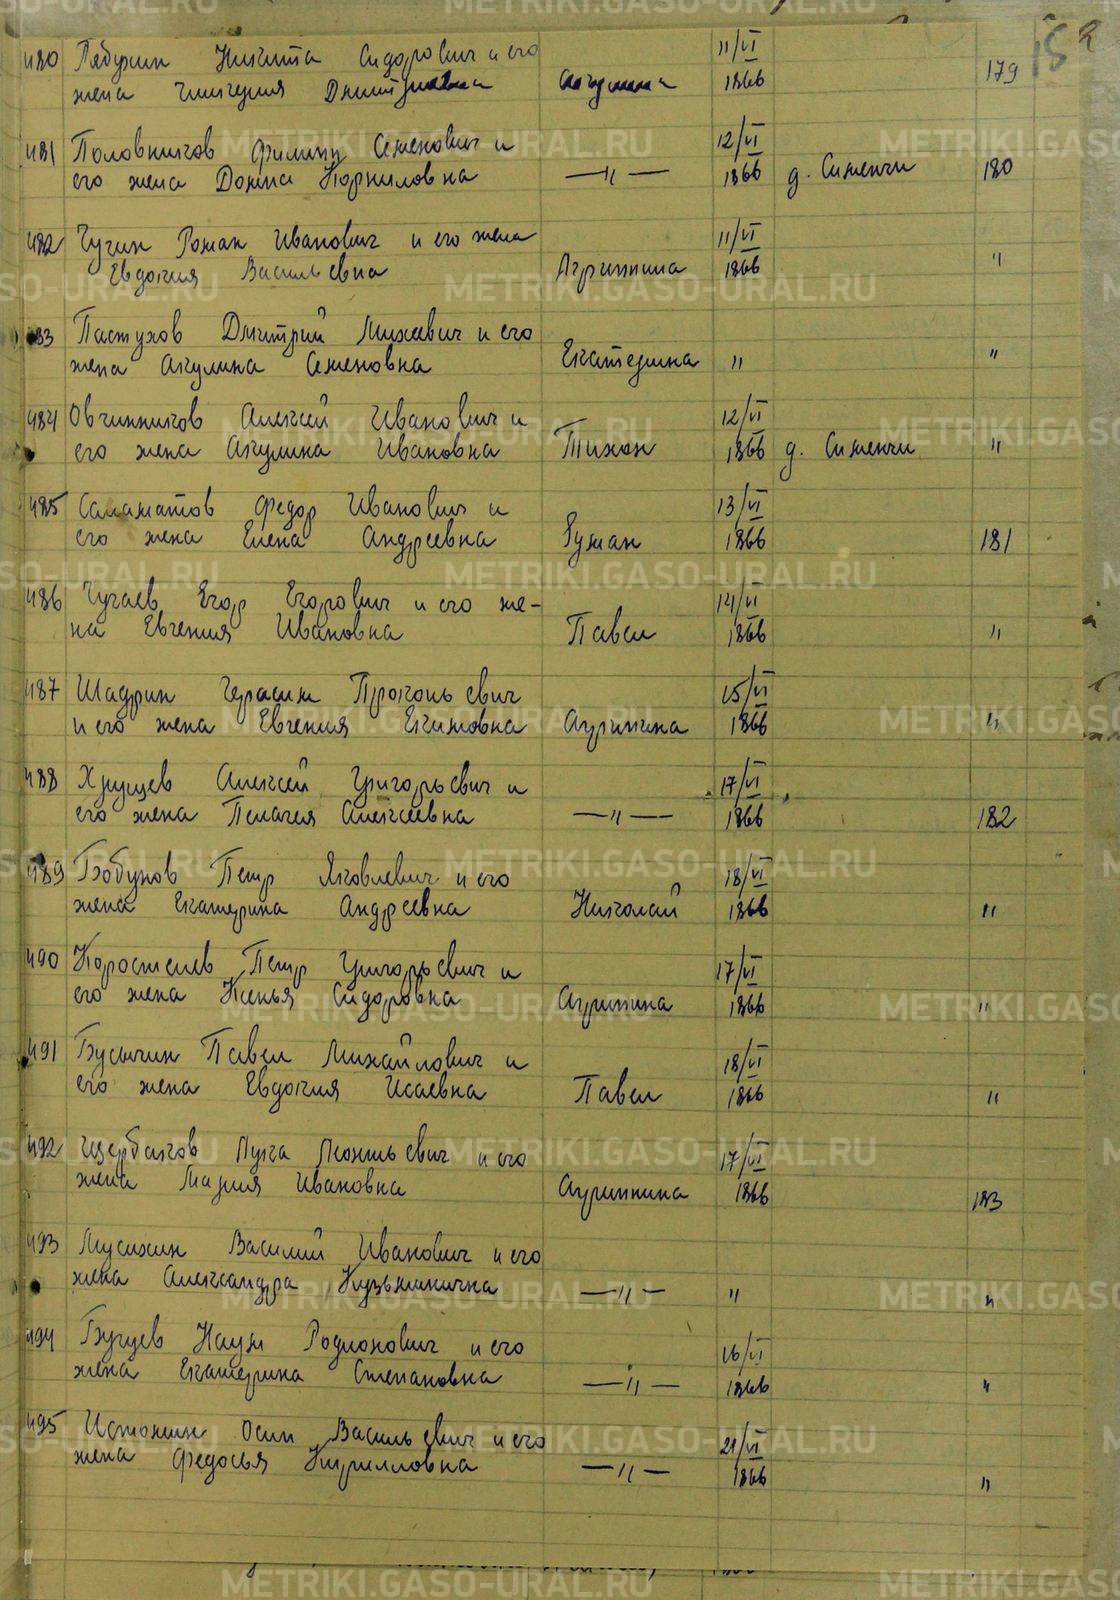 152
480 Рябухин Никита Сидорович и его 11/VI
жена Гликерия Дмитриевна Акулина 1866 179
481 Половников Филипп Семенович и 12/VI
его жена Домна Корниловна —"— 1866 д. Сименчи 180
482 Чугин Роман Иванович и его жена 11/VI
Евдокия Васильевна Агриппина 1866 "
483 Пастухов Дмитрий Михеевич и его
жена Акулина Семеновна Екатерина " "
484 Овчинников Алексей Иванович и 12/VI
его жена Акулина Ивановна Тихон 1866 д. Сименчи "
485 Саламатов Федор Иванович и 13/VI
его жена Елена Андреевна 1866 181
486 Чугаев Егор Егорович и его же- 14/VI
на Евгения Ивановна Павел 1866 "
487 Шадрин Герасим Прокопьевич 15/VI
и его жена Евгения Екимовна Агрипина 1866 "
488 Хрущев Алексей Григорьевич и 17/VI
его жена Пелагея Алексеевна —"— 1866 182
489 Бобунов Петр Яковлевич и его 18/VI
жена Екатерина Андреевна Николай 1866 "
490 Коростелев Петр Григорьевич и 17/VI
его жена Ксенья Сидоровна Агрипина 1866 "
491 Бусыгин Павел Михайлович и 18/VI
его жена Евдокия Исаевна Павел 1866 "
492 Щербаков Лука Леонтьевич и его 17/VI
жена Мария Ивановна Агриппина 1866 183
493 Мусихин Василий Иванович и его
жена Александра Кузьминична —"— " "
494 Бугуев Наум Родионович и его 16/VI
жена Екатерина Степановна —"— 1866 "
495 Истомин Осип Васильевич и его 21/VI
жена Федосья Кирилловна —"— 1866 "
METRIKI.GASO-URAL.RU